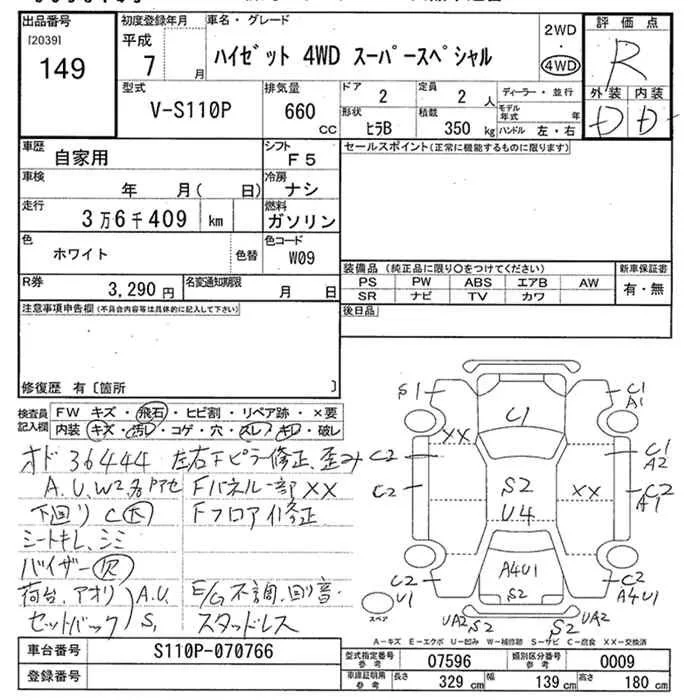 出品番号
[2039]
149
初度登録年月
平成
7 月
車名・グレード
ハイゼット 4WD スーパースペシャル
2WD
・
4WD
評価点
R
外装 内装
D D
型式
V-S110P
排気量
660
CC
ドア
2
定員
2 人
形状
ヒラB
積載
350 kg
ディーラー・並行
モデル年式 年
ハンドル 左・右
車歴
自家用
シフト
F5
車検
年 月( 日)
冷房
ナシ
走行
3万6千409 km
燃料
ガソリン
色
ホワイト
色替
色コード
W09
R券
3,290 円
名変通知期限
月 日
セールスポイント(正常に機能するものに限ります)
装備品 (純正品に限り○をつけてください)
PS PW ABS エアB AW
SR ナビ TV カワ
新車保証書
有・無
後日品
注意事項申告欄(不具合内容等は具体的に記入して下さい)
修復歴 有〔箇所 〕
検査員記入欄
FW キズ・飛石・ヒビ割・リペア跡・×要
内装 キズ・汚レ・コゲ・穴・スレ・キレ・破レ
オド 36444 左右Fピラー修正、歪み
A.U.W2.各 Fパネル一部XX
下回りC大 Fフロア修正
シートキレ、シミ
バイザー欠
荷台、アオリ A.U. E/G不調、回り音.
セットバック S, スタッドレス
S1
C1
C1
A1
XX
C2
C1
A2
C2
S2
XX
C2
A1
U4
C2
U1
A4U1
S2
C2
A4U1
スペア
UA2
S2
S2
UA2
A-キズ E-エクボ U-凹み W-補修跡 S-サビ C-腐食 XX-交換済
車台番号
S110P-070766
登録番号
型式指定番号
参考
07596
類別区分番号
参考
0009
車庫証明用
参考
長さ
329 cm
幅
139 cm
高さ
180 cm